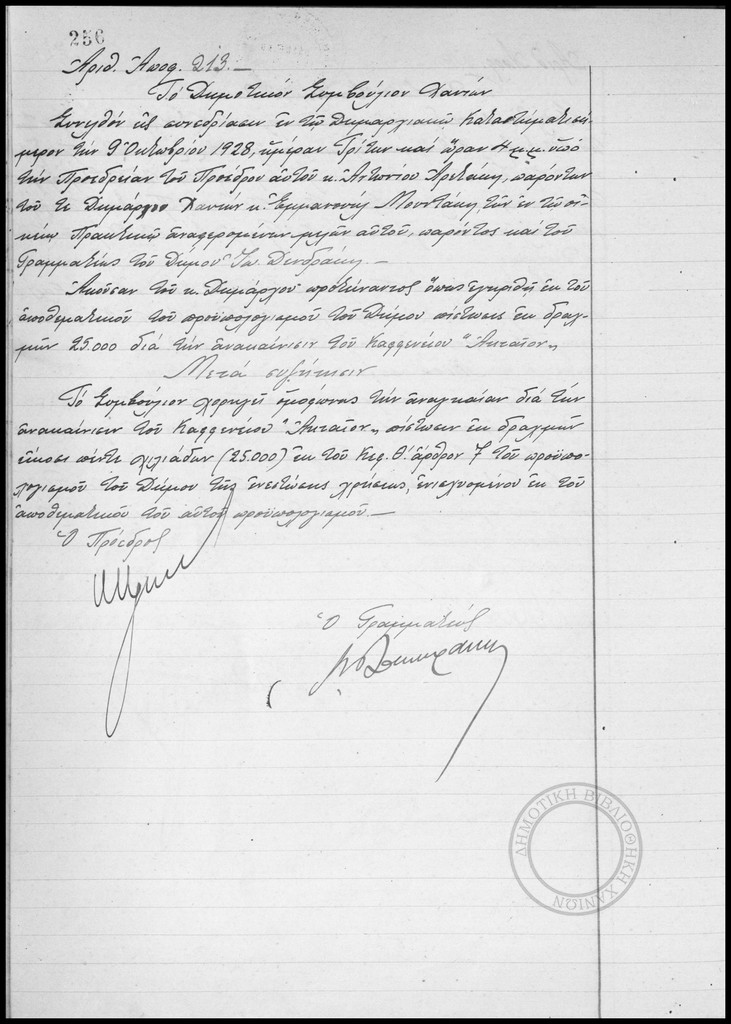 256
Ἀριθ. Ἀποφ. 213.—
Τό Δημοτικόν Συμβούλιον Χανίων
Συνελθόν εἰς συνεδρίασιν ἐν τῷ Δημαρχιακῷ Καταστήματι σή-
μερον τήν 9 Ὀκτωβρίου 1928, ἡμέραν Τρίτην καί ὥραν 4 μ.μ. ὑπό
τήν Προεδρείαν τοῦ Προέδρου αὐτοῦ κ. Ἀντωνίου παρόντων
τοῦ τε Δημάρχου Χανίων κ. Ἐμμανουήλ Μουντάκη, τῶν ἐν τῷ οἰ-
κείῳ Πρακτικῷ ἀναφερομένων μελῶν αὐτοῦ, παρόντος καί τοῦ
Γραμματέως τοῦ Δήμου Ἰω. Δενδράκη.—
Ἀκοῦσαν τοῦ κ. Δημάρχου προτείναντος ὅπως ἐγκριθῇ ἐκ τοῦ
ἀποθεματικοῦ τοῦ προϋπολογισμοῦ τοῦ Δήμου πίστωσις ἐκ δραχ-
μῶν 25.000 διά τήν ἀνακαίνισιν τοῦ Καφφενείου "Ἀκταῖον„
Μετά συζήτησιν
Τό Συμβούλιον χορηγεῖ ὁμοφώνως τήν ἀναγκαίαν διά τήν
ἀνακαίνισιν τοῦ Καφφενείου "Ἀκταῖον„ πίστωσιν ἐκ δραχμῶν
εἴκοσι πέντε χιλιάδων (25.000) ἐκ τοῦ Κεφ. Θ' ἄρθρον 7 τοῦ προϋπο-
λογισμοῦ τοῦ Δήμου τῆς ἐνεστώσης χρήσεως, ἐνισχυομένου ἐκ τοῦ
ἀποθεματικοῦ τοῦ αὐτοῦ προϋπολογισμοῦ.—
Ὁ Πρόεδρος
Ὁ Γραμματεύς
ΔΗΜΟΤΙΚΗ ΒΙΒΛΙΟΘΗΚΗ ΧΑΝΙΩΝ